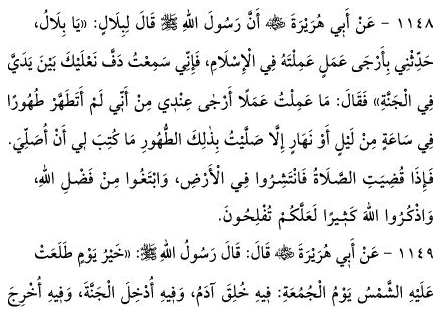 ١١٤٨ - عَنْ أَبِي هُرَيْرَةَ ﵁ أَنَّ رَسُولَ اللهِ ﷺ قَالَ لِبِلَالٍ: «يَا بِلَالُ،
حَدِّثْنِي بِأَرْجَى عَمَلٍ عَمِلْتَهُ فِي الْإِسْلَامِ، فَإِنِّي سَمِعْتُ دَفَّ نَعْلَيْكَ بَيْنَ يَدَيَّ
فِي الْجَنَّةِ» فَقَالَ: مَا عَمِلْتُ عَمَلًا أَرْجَى عِنْدِي مِنْ أَنِّي لَمْ أَتَطَهَّرْ طُهُورًا
فِي سَاعَةٍ مِنْ لَيْلٍ أَوْ نَهَارٍ إِلَّا صَلَّيْتُ بِذَلِكَ الطُّهُورِ مَا كُتِبَ لِي أَنْ أُصَلِّيَ.
فَإِذَا قُضِيَتِ الصَّلَاةُ فَانْتَشِرُوا فِي الْأَرْضِ، وَابْتَغُوا مِنْ فَضْلِ اللهِ،
وَاذْكُرُوا اللهَ كَثِيرًا لَعَلَّكُمْ تُفْلِحُونَ.
١١٤٩ - عَنْ أَبِي هُرَيْرَةَ ﵁ قَالَ: قَالَ رَسُولُ اللهِ ﷺ: «خَيْرُ يَوْمٍ طَلَعَتْ
عَلَيْهِ الشَّمْسُ يَوْمُ الْجُمُعَةِ: فِيهِ خُلِقَ آدَمُ، وَفِيهِ أُدْخِلَ الْجَنَّةَ، وَفِيهِ أُخْرِجَ